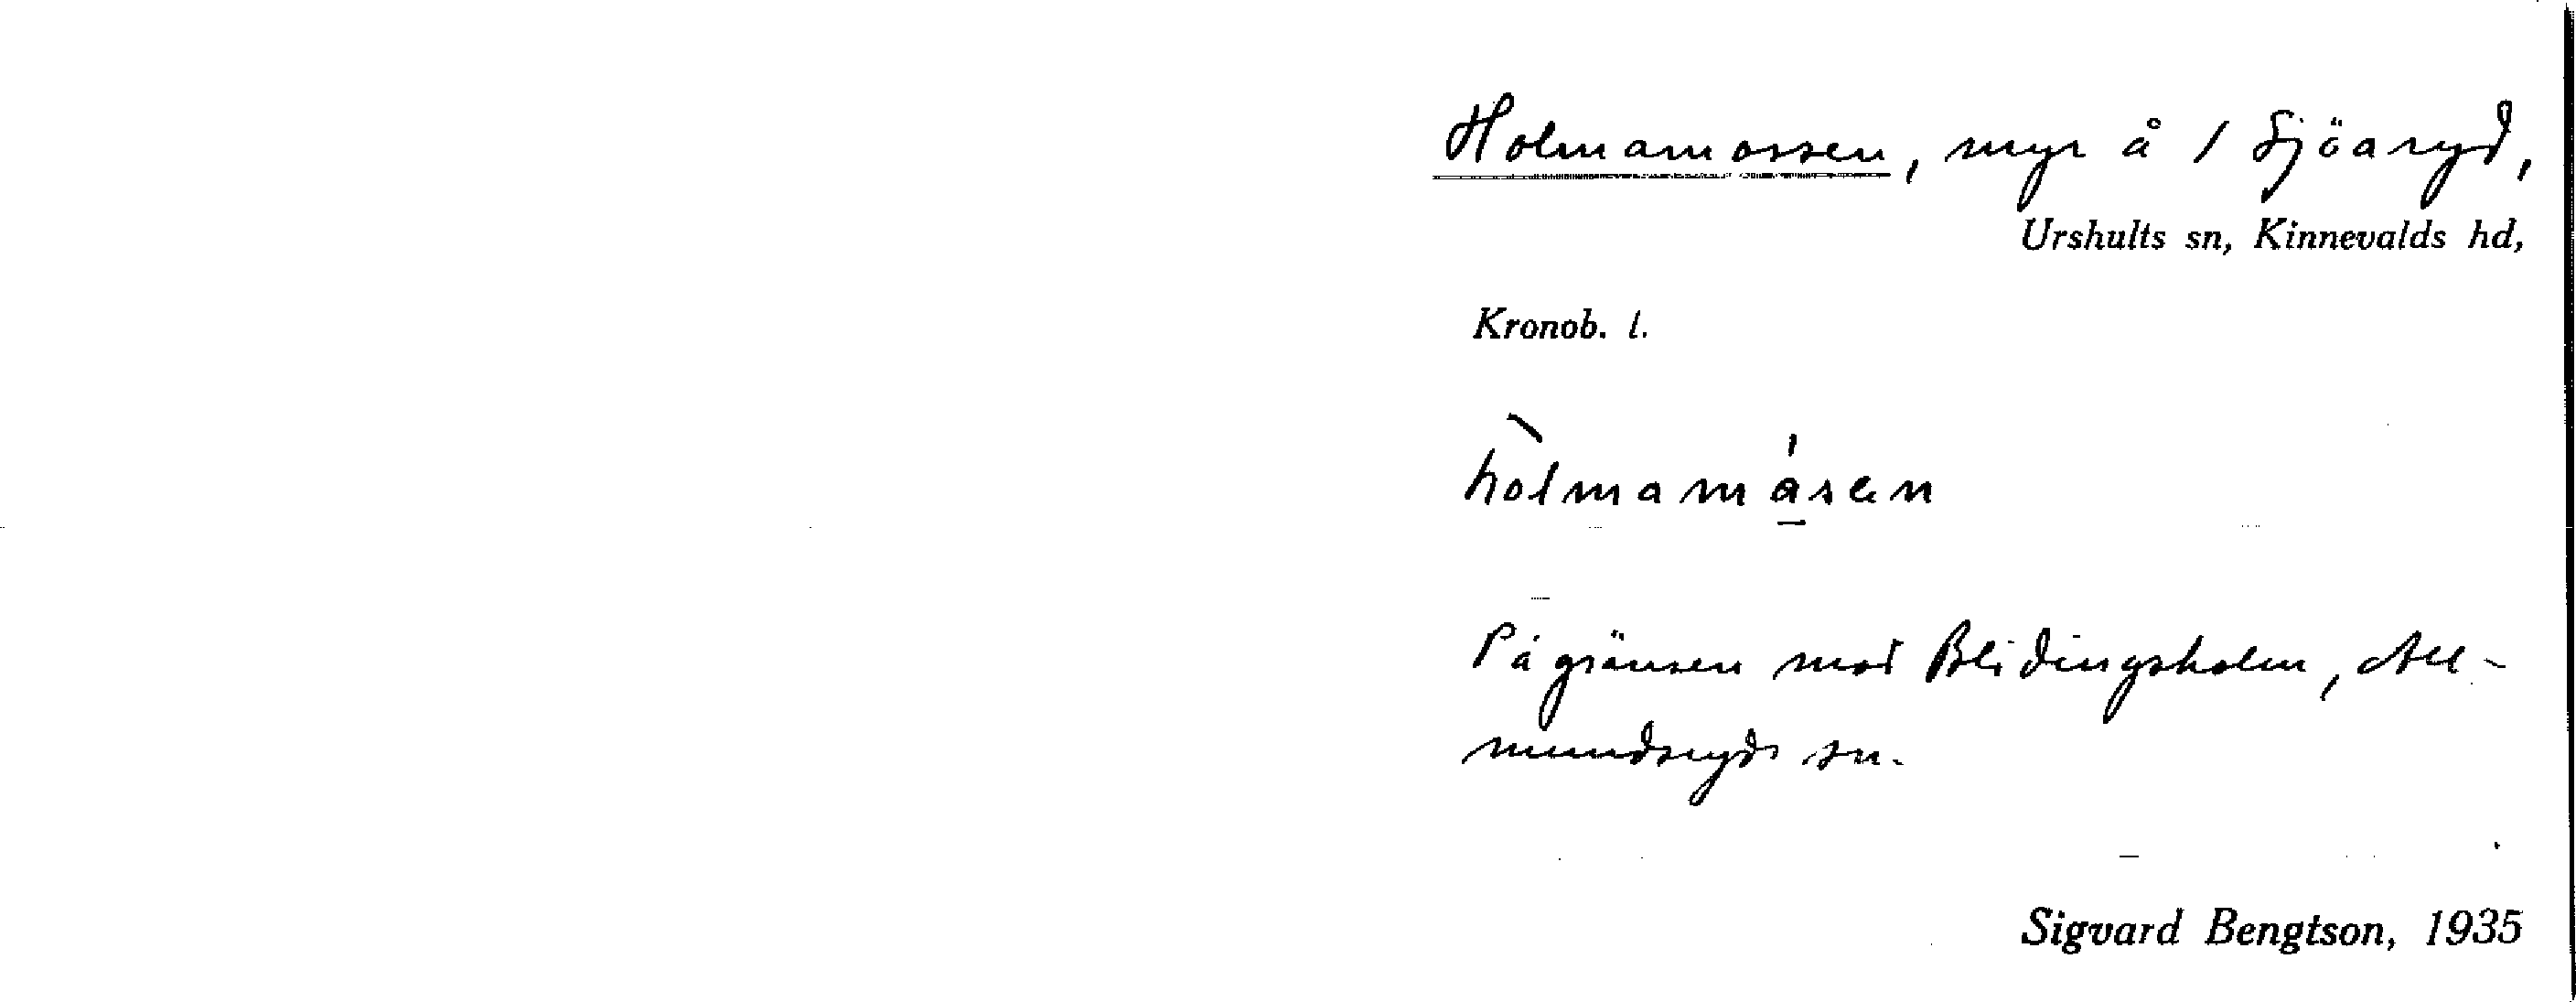 Holmamossen, myr å 1 Sjöaryd,
Urshults sn, Kinnevalds hd,
Kronob. l.
hòlmamåsen
På gränsen mot Blidingsholm, Al-
mundsryds sn.
Sigvard Bengtson, 1935